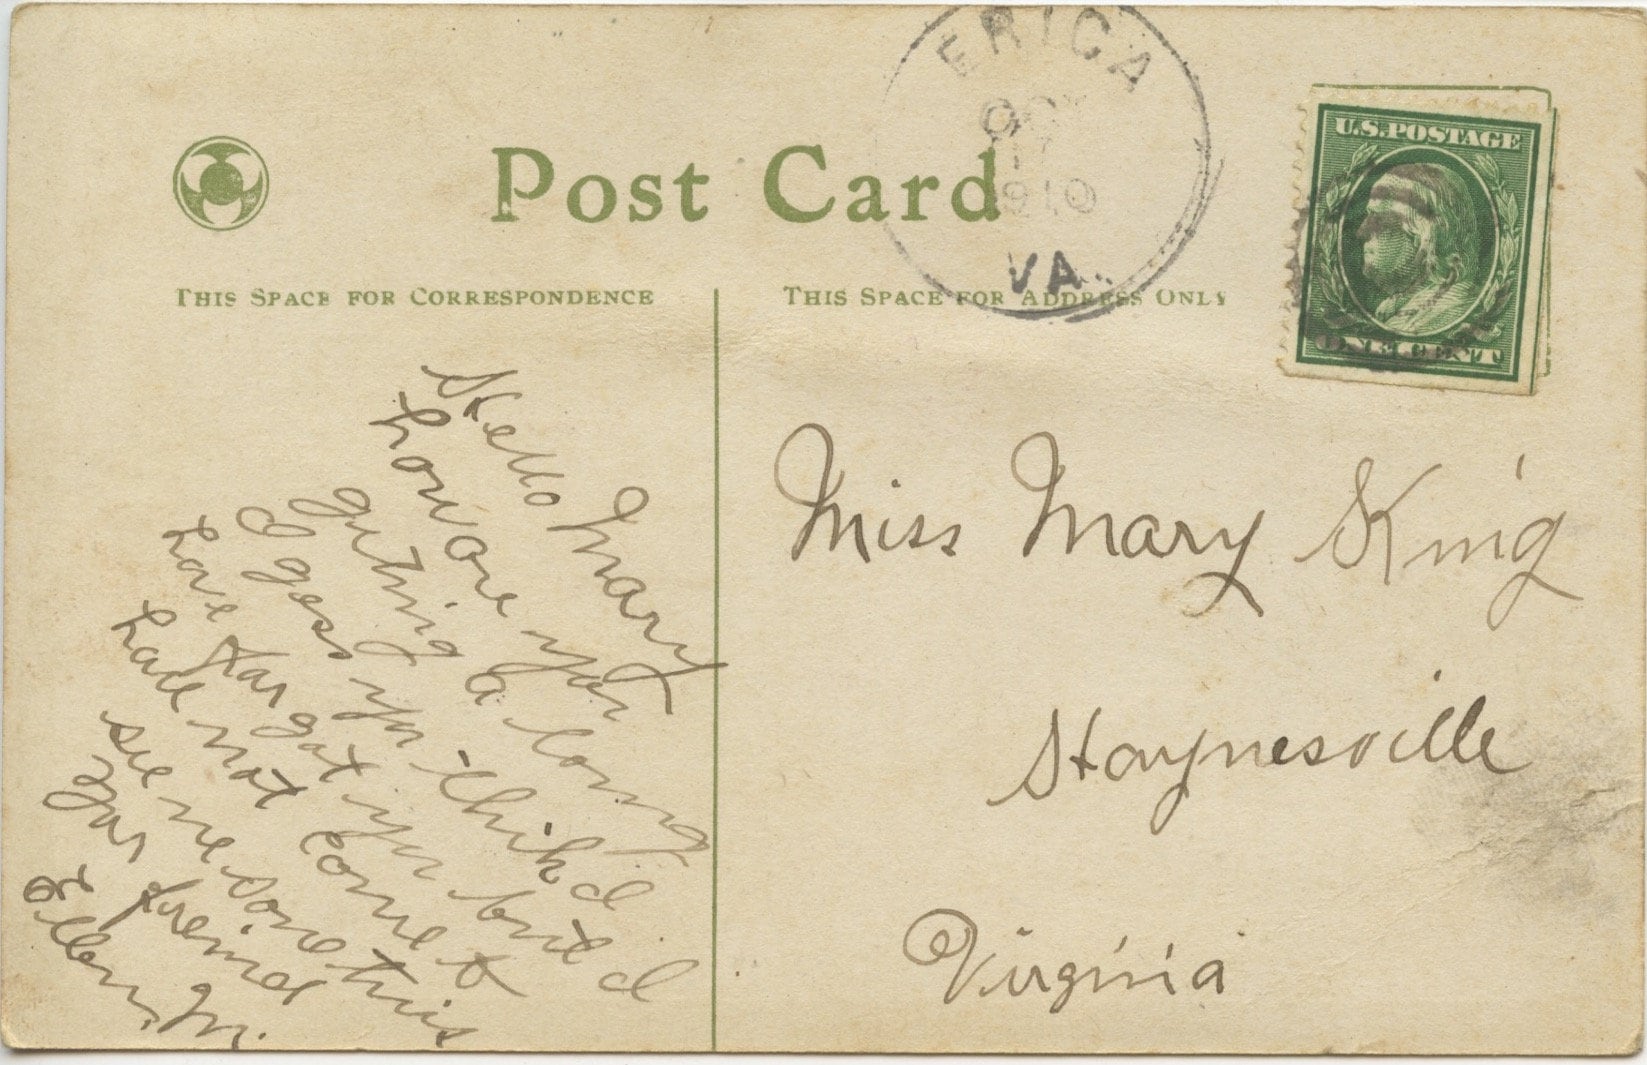 ERICA
OCT
1910
VA.
U.S. POSTAGE
ONE CENT
Post Card
THIS SPACE FOR CORRESPONDENCE
THIS SPACE FOR ADDRESS ONLY
Hello Mary
how are you
geting a long
I gess you think I
have for got you but I
have not come to
see me some time
your freind
Ellen M.
Miss Mary King
Haynesville
Virginia